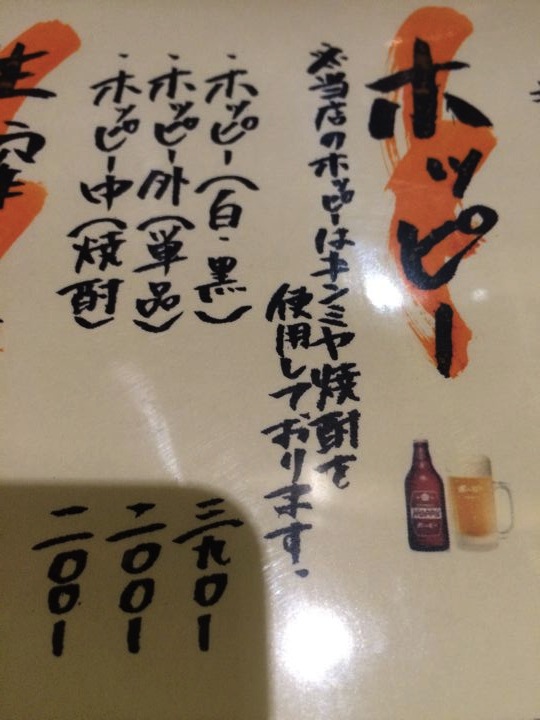 ホッピー
※当店のホッピーはキンミヤ焼酎を
使用しております。
・ホッピー(白・黒) 三九〇ー
・ホッピー外(単品) 二〇〇ー
・ホッピー中(焼酎) 二〇〇ー
HOPPY